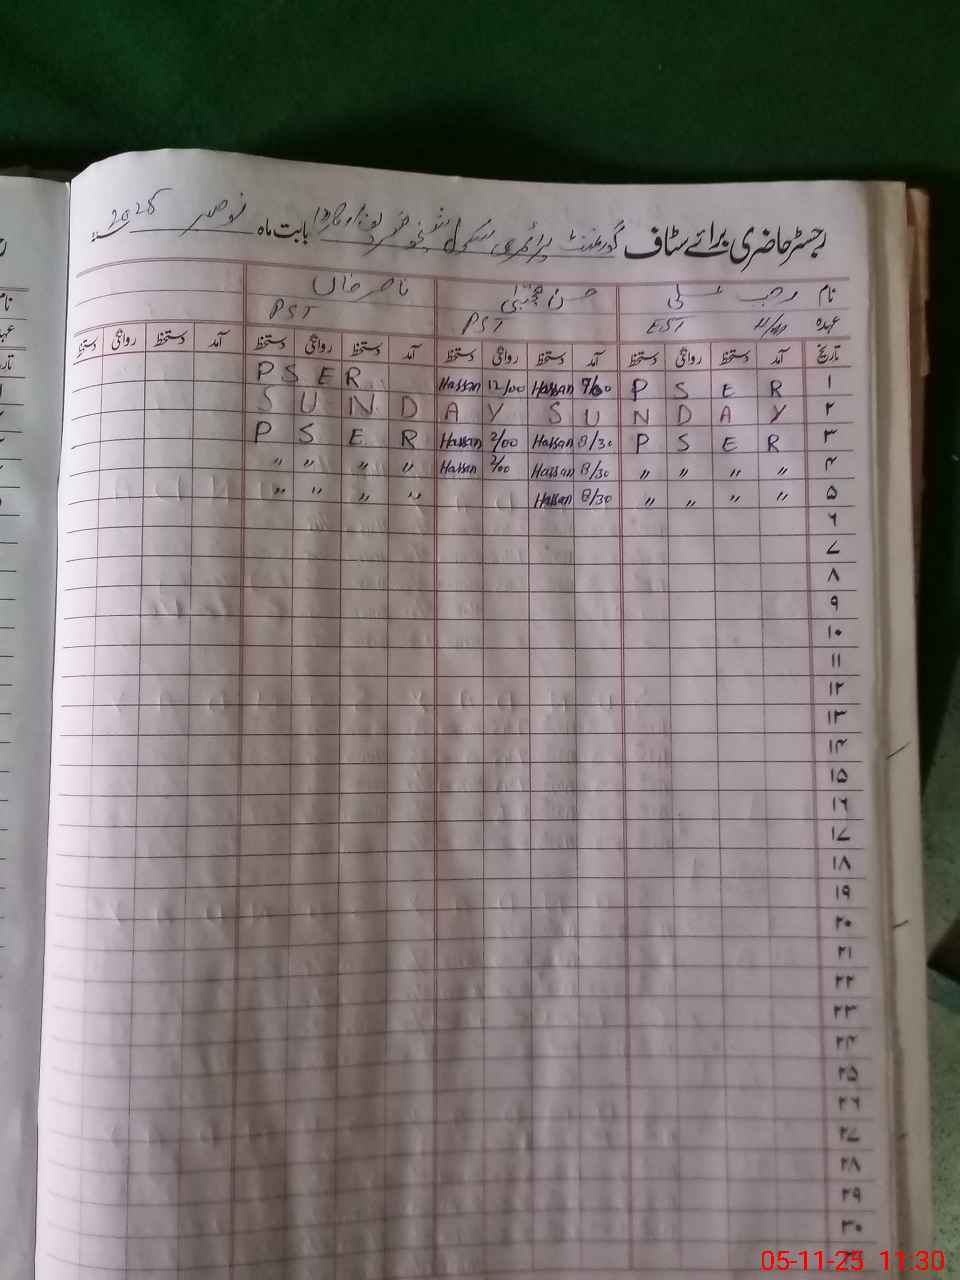 رجسٹر حاضری برائے سٹاف گورنمنٹ پرائمری سکول بابت ماہ نومبر 2025ء
نام رجب علی حسن مجتبیٰ ناصر خاں
عہدہ EST PST PST
تاریخ آمد دستخط روانگی دستخط آمد دستخط روانگی دستخط آمد دستخط روانگی دستخط آمد دستخط روانگی دستخط
P S E R Hassan 12/00 Hassan P S E R ۱
S U N D A Y S U N D A Y ۲
P S E R Hassan 2/00 Hassan 8/30 P S E R ۳
" " " " Hassan 2/00 Hassan 8/30 " " " " ۴
" " " " Hassan 8/30 " " " " ۵
۶
۷
۸
۹
۱۰
۱۱
۱۲
۱۳
۱۴
۱۵
۱۶
۱۷
۱۸
۱۹
۲۰
۲۱
۲۲
۲۳
۲۴
۲۵
۲۶
۲۷
۲۸
۲۹
۳۰
05-11-25 11:30